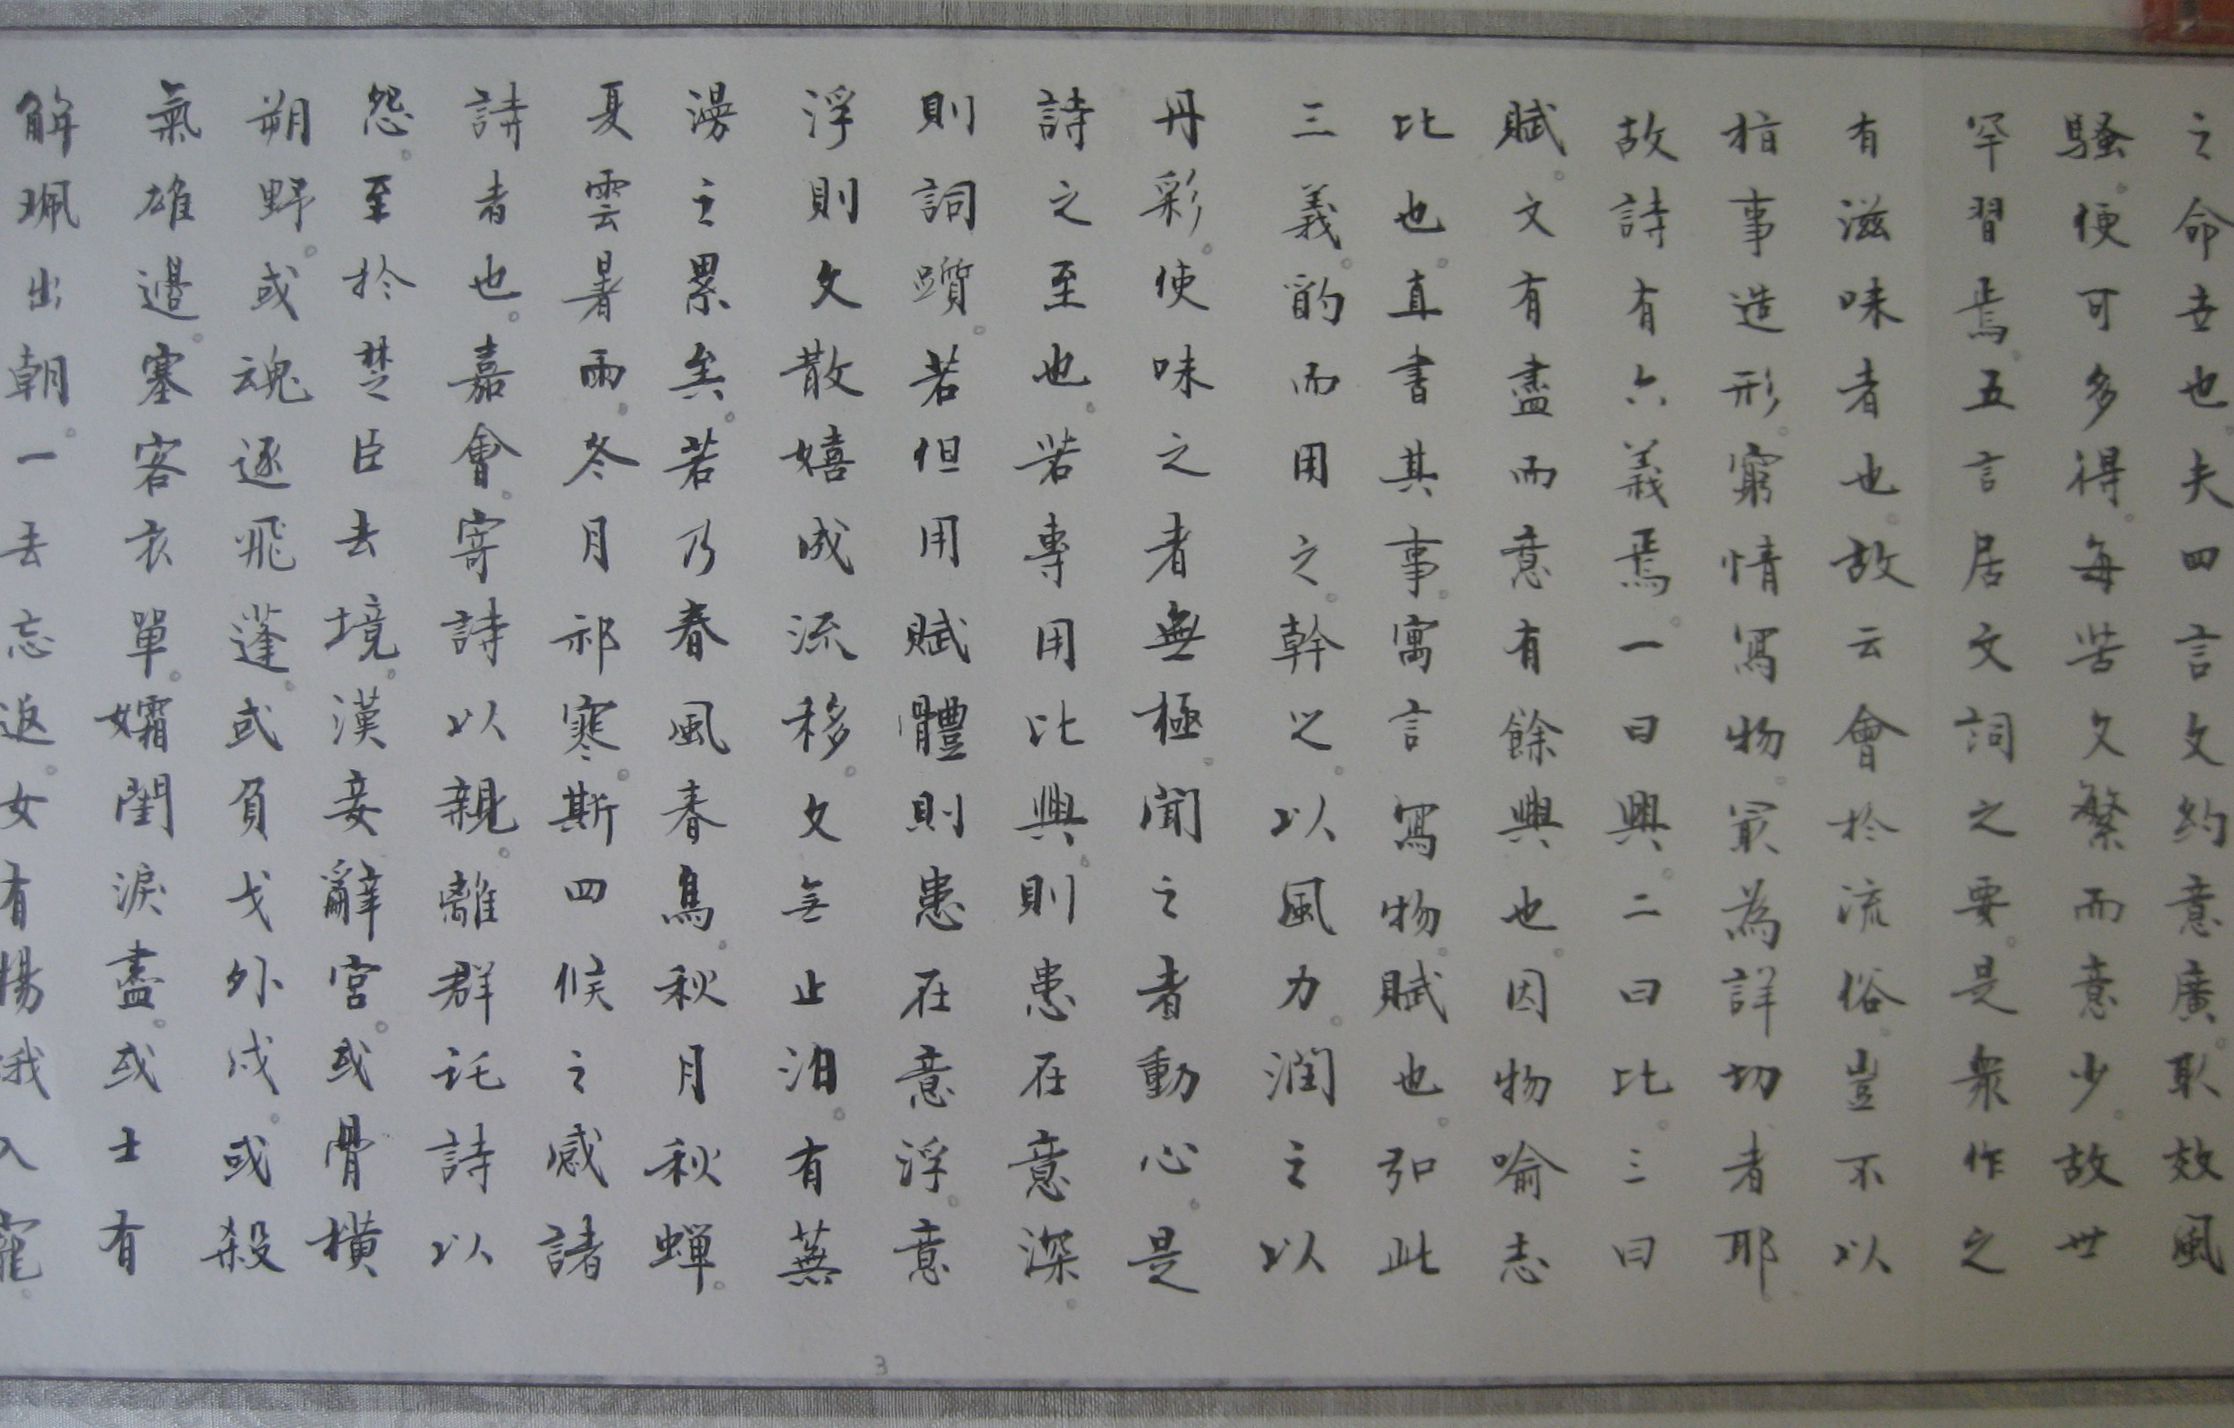 之命世也夫四言文約意廣。取效風
騷。便可多得。每苦文繁而意少。故世
罕習焉。五言居文詞之要。是衆作之
有滋味者也。故云會於流俗。豈不以
指事造形。窮情寫物。最為詳切者耶
故詩有六義焉。一曰興。二曰比。三曰
賦。文有盡而意有餘興也。因物喻志
比也。直書其事。寓言寫物。賦也。弘此
三義。酌而用之。幹之以風力。潤之以
丹彩。使味之者無極。聞之者動心。是
詩之至也。若專用比興。則患在意深。
則詞躓。若但用賦體則患在意浮。意
浮則文散嬉成流移。文無止泊。有蕪
漫之累矣。若乃春風春鳥。秋月秋蟬。
夏雲暑雨。冬月祁寒。斯四候之感諸
詩者也。嘉會。寄詩以親。離群託詩以
怨。至於楚臣去境。漢妾辭宮。或骨橫
朔野。或魂逐飛蓬。或負戈外戍。或殺
氣雄邊。塞客衣單。孀閨淚盡。或士有
解珮出朝。一去忘返。女有揚蛾入寵。